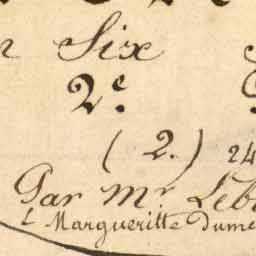 Six
2e.
(2.) 24
Par Mr Leb
L Margueritte Dume